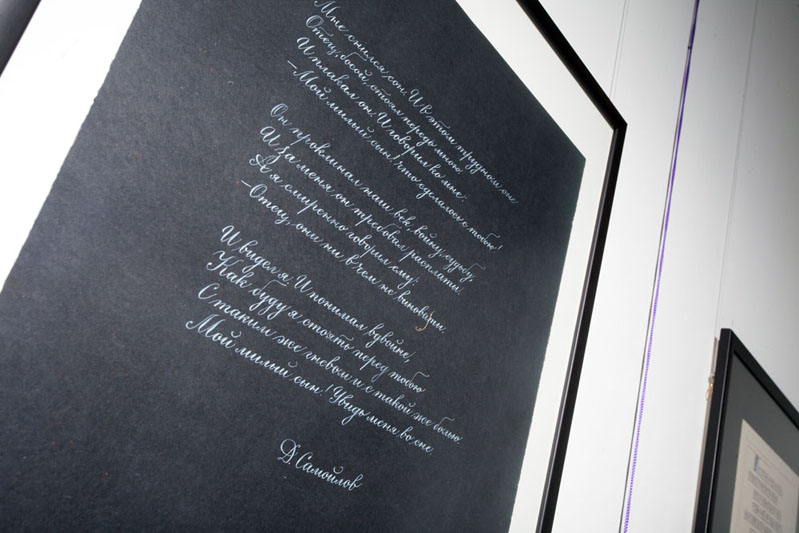 Мне снился сон. И в этом трудном сне
Отец, босой, стоял передо мною.
И плакал он. И говорил ко мне:
– Мой милый сын! Что сделалось с тобою!
Он проклинал наш век, войну, судьбу,
И за меня он требовал расплаты.
А я смиренно говорил ему:
– Отец, они ни в чем не виноваты.
И видел я. И понимал вдвойне,
Как буду я стоять перед тобою
С таким же гневом и с такой же болью.
Мой милый сын! Увидь меня во сне.
Д. Самойлов